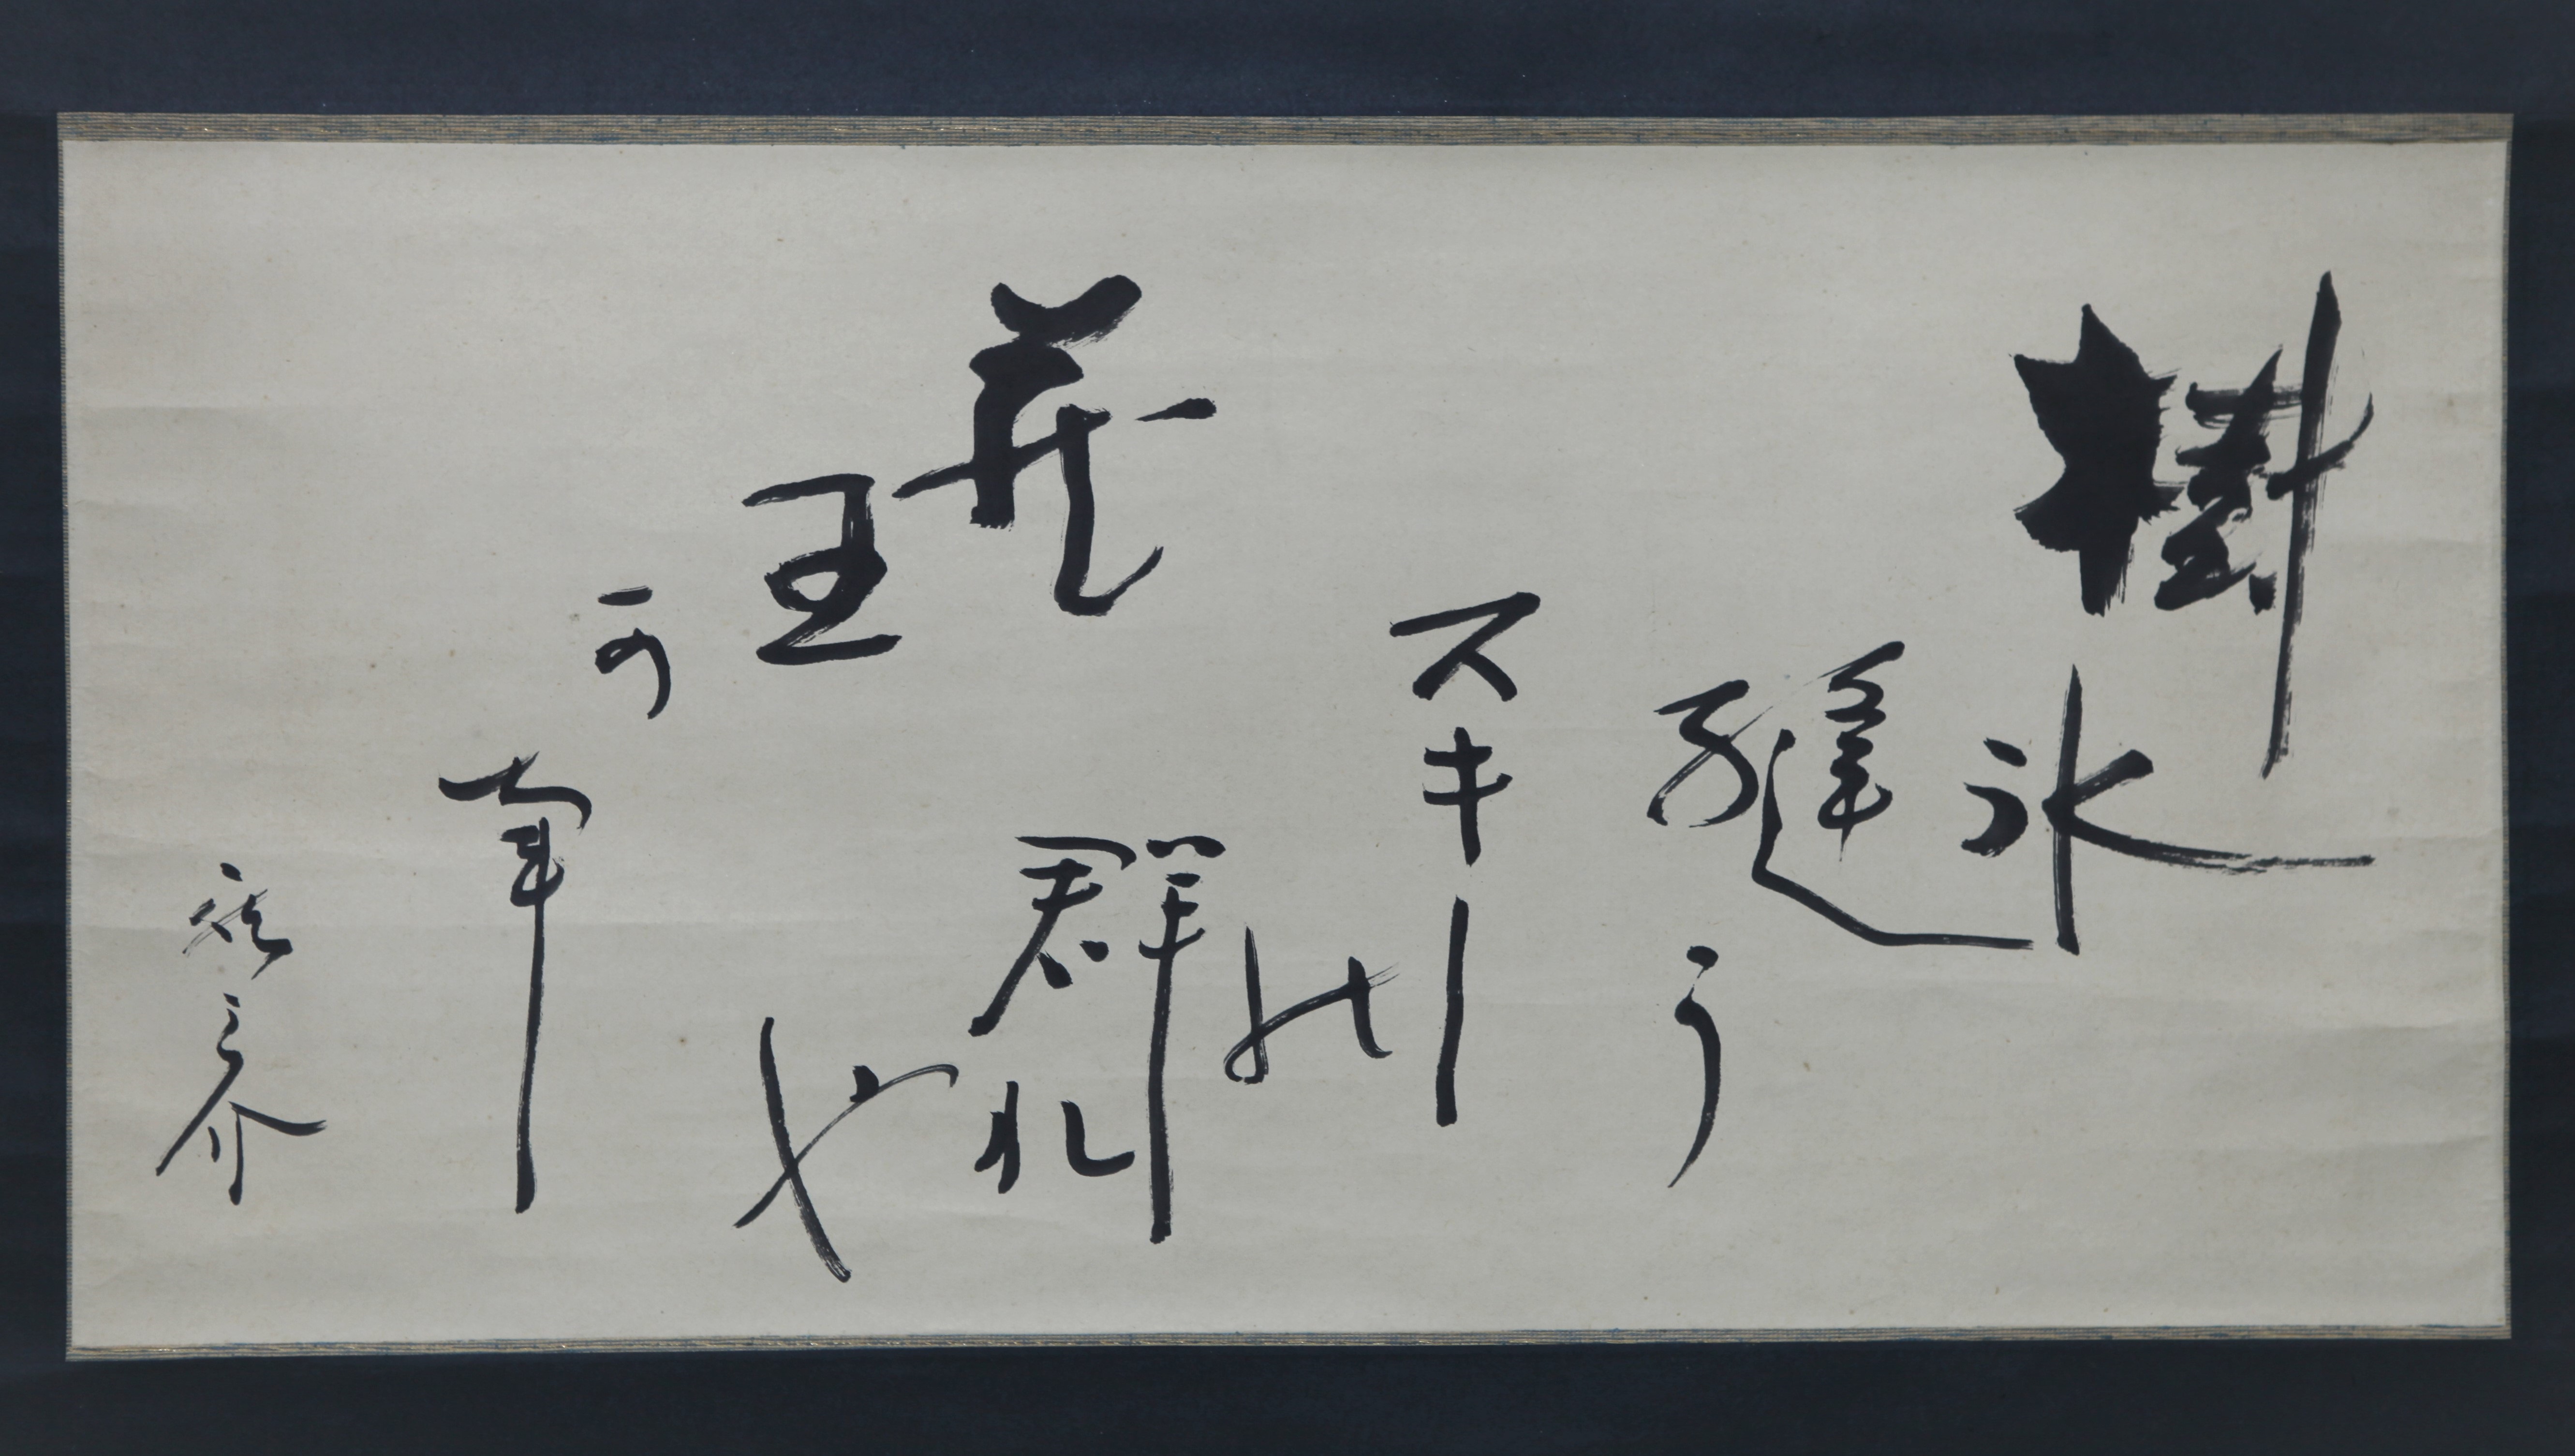 樹氷
縫う
スキー
の
群れ
や
蔵王
可南
之介